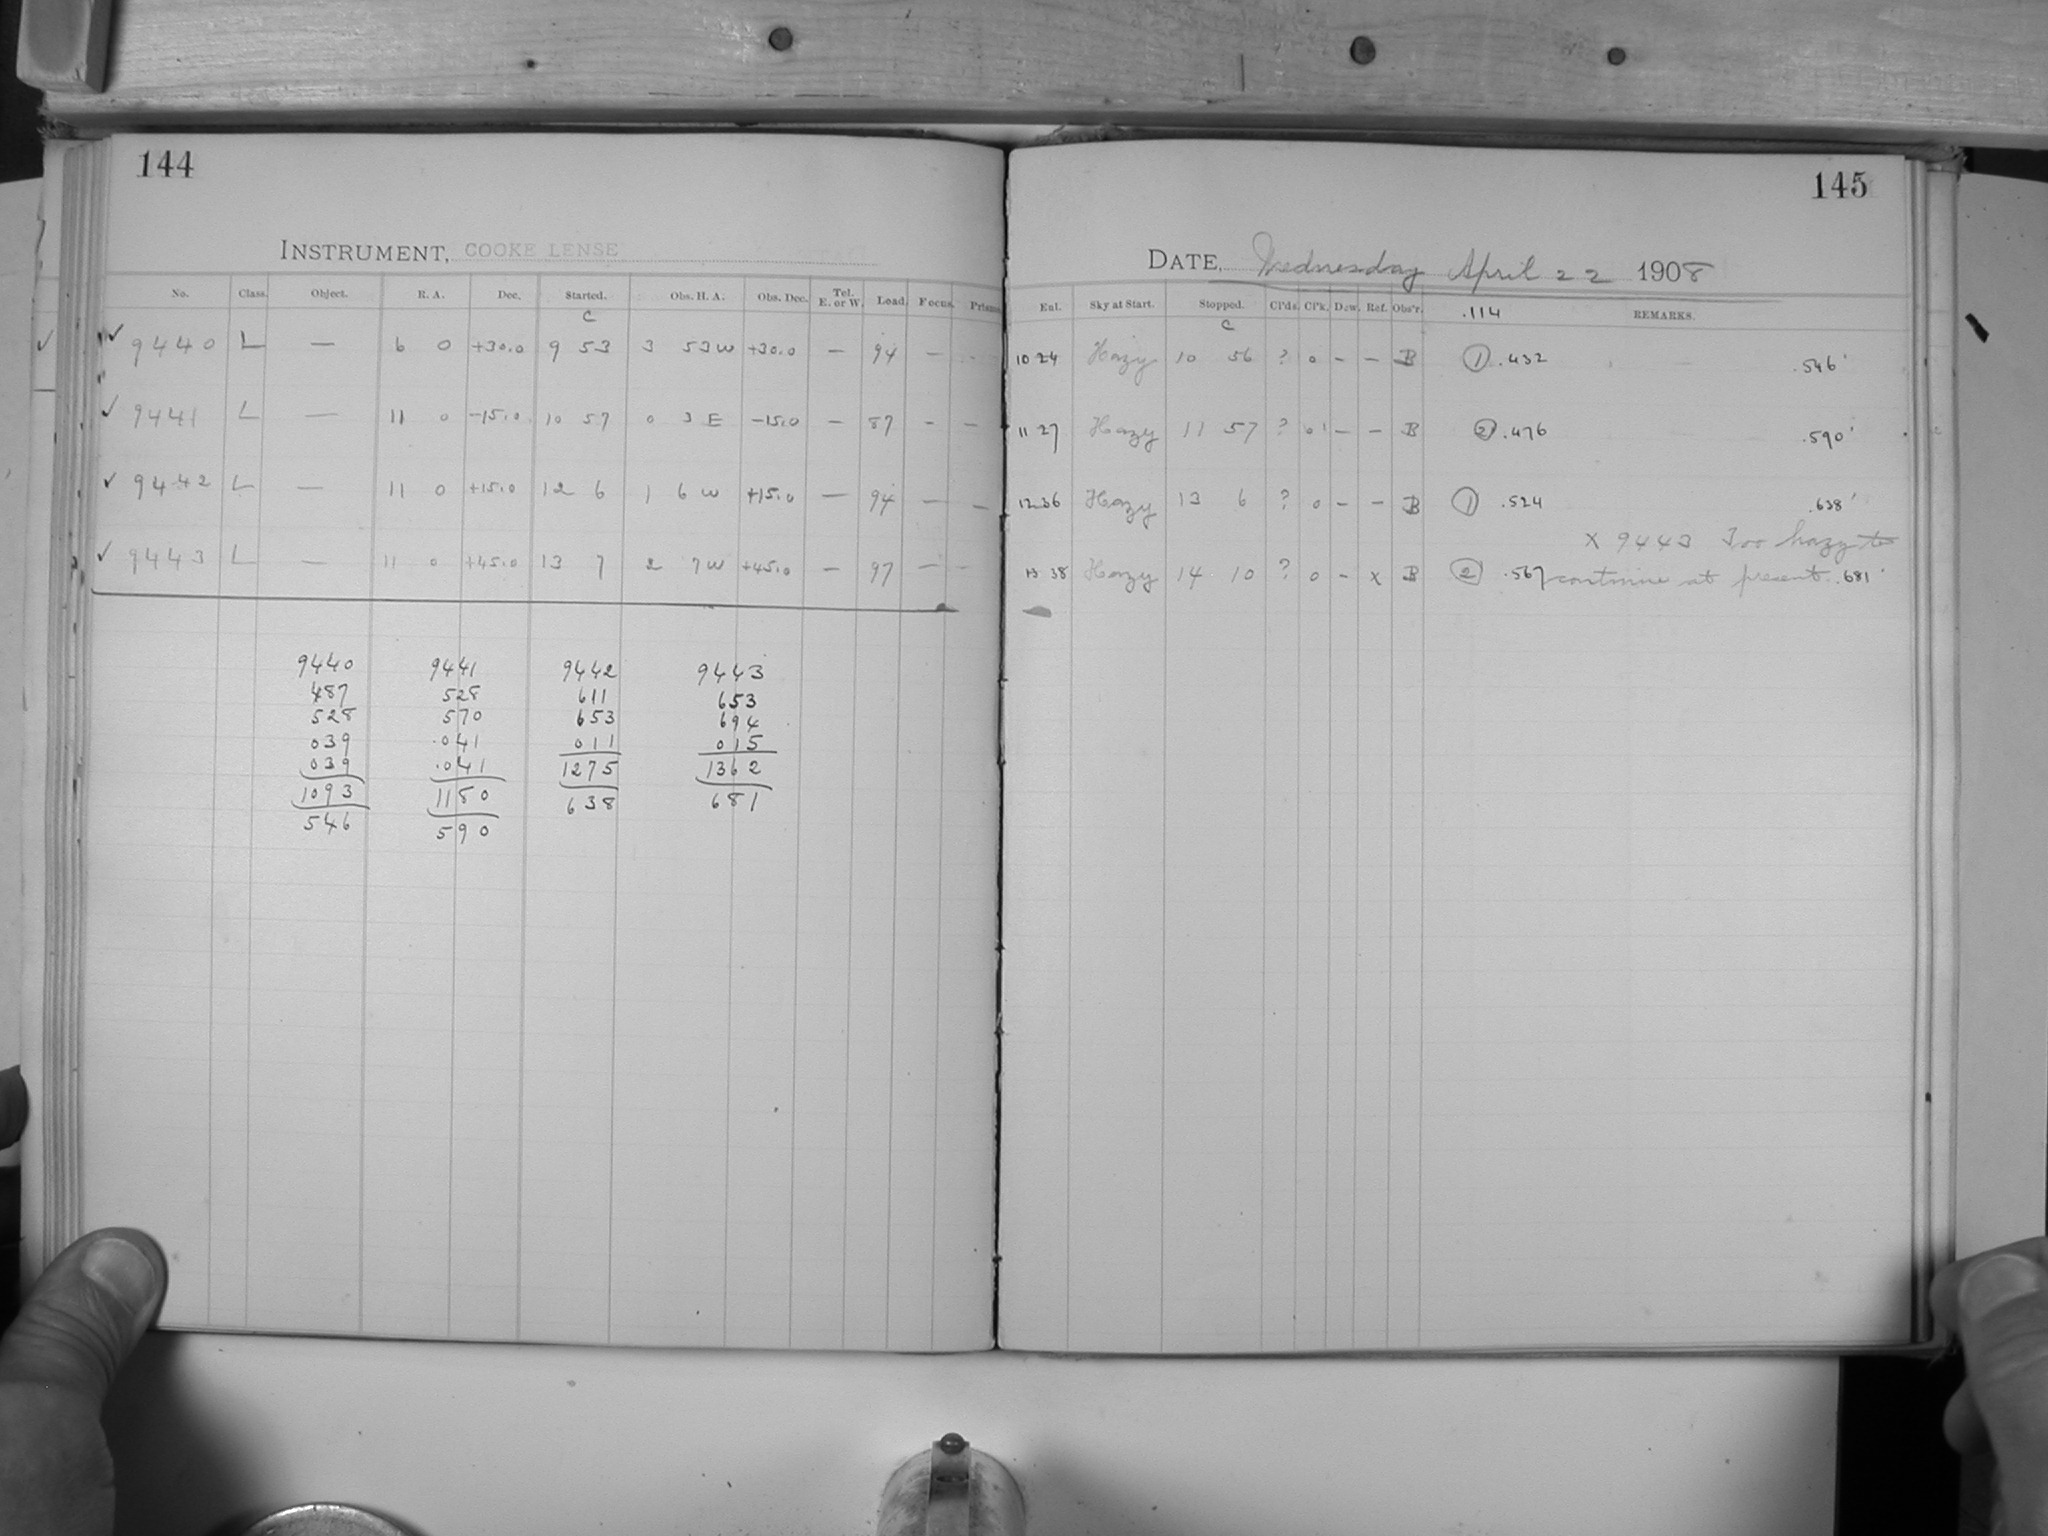 144
INSTRUMENT, COOKE LENSE
No. Class. Object. R. A. Dec. Started. Obs. H. A. Obs. Dec. Tel. E. or W. Load. Focus. Prisms.
C
✓ 9440 L — 6 0 +30.0 9 53 3 53 W +30.0 — 94 — -
✓ 9441 L — 11 0 -15.0 10 57 0 3 E -15.0 — 87 - —
✓ 9442 L — 11 0 +15.0 12 6 1 6 W +15.0 — 94 — —
✓ 9443 L — 11 0 +45.0 13 7 2 7 W +45.0 — 97 — —
9440 9441 9442 9443
487 528 611 653
528 570 653 694
039 .041 011 015
039 .041 1275 1362
1093 1180 638 681
546 590
145
DATE, Wednesday April 22 1908
Enl. Sky at Start. Stopped. Cl'ds. Cl'k. Dew. Ref. Obs'r. .114 REMARKS.
C
10 24 Hazy 10 56 ? 0 - - B 1 .432 .546
11 27 Hazy 11 57 ? 0 - - B 2 .476 .590
12 36 Hazy 13 6 ? 0 - - B 1 .524 .638
x 9443 Too hazy to
13 38 Hazy 14 10 ? 0 - x B 2 .567 continue at present. .681